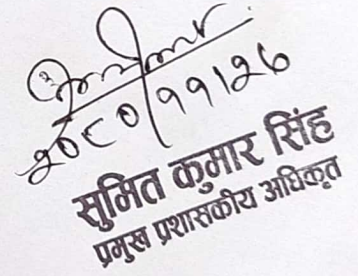 २०८०/११/२७
सुमित कुमार सिंह
प्रमुख प्रशासकीय अधिकृत